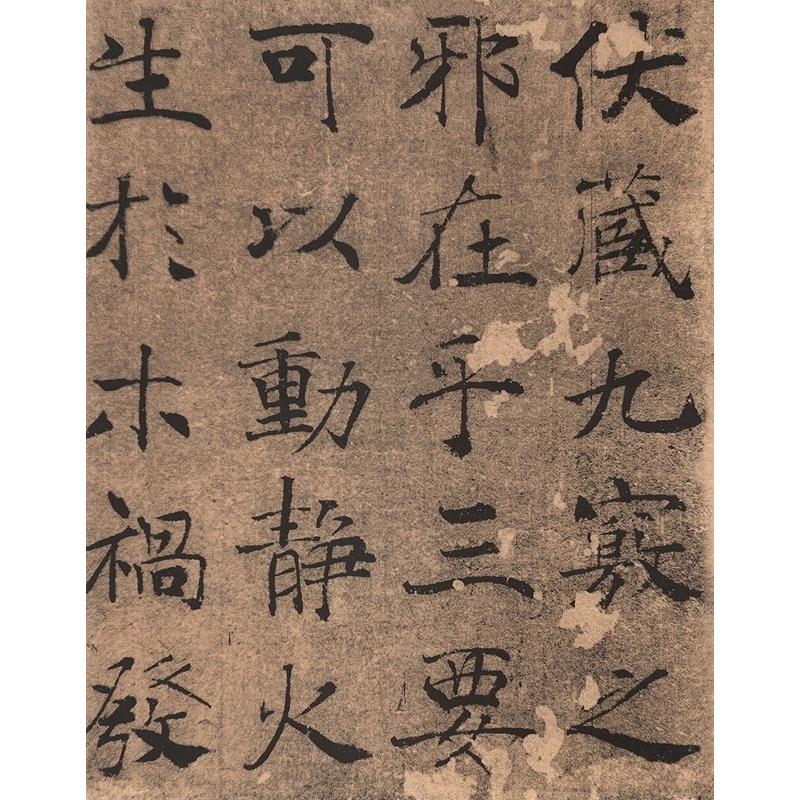 伏藏九竅之
邪在乎三要
可以動靜火
生於木禍發